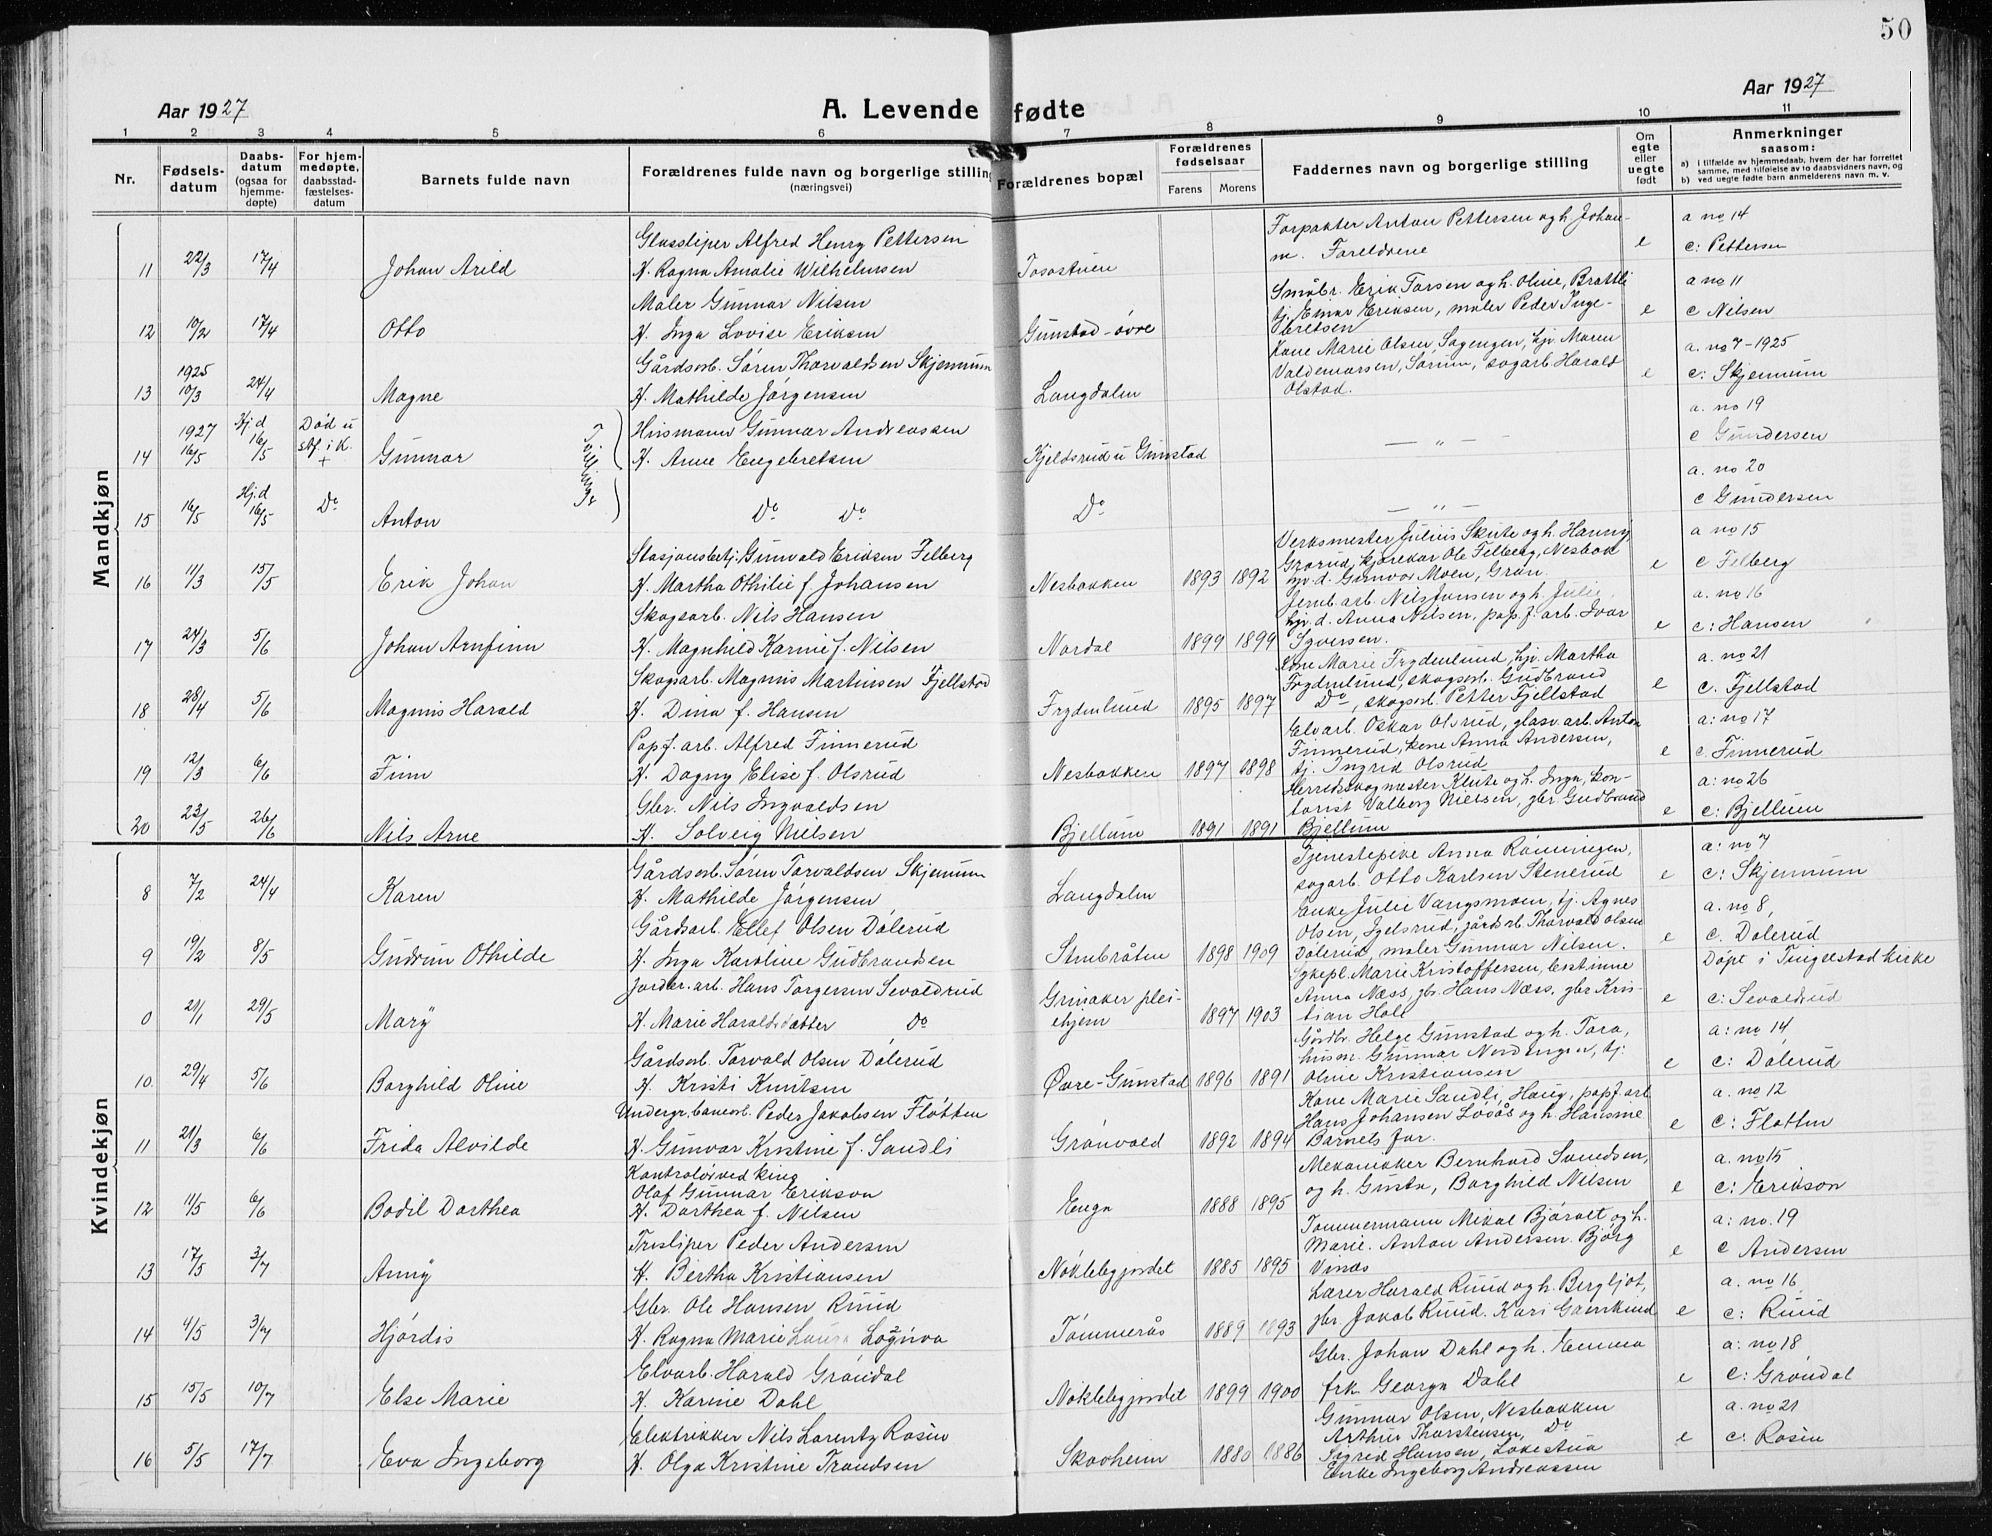 50
Aar 1927
A. Levende fødte
Aar 1927
1 2 3 4 5 6 7 8 9 10 11
Nr.
Fødsels-datum
Daabs-datum (ogsaa for hjemme-døpte)
For hjem-medøpte, daabsstad-fæstelses-datum
Barnets fulde navn
Forældrenes fulde navn og borgerlige stilling (næringsvei)
Forældrenes bopæl
Forældrenes fødselsaar
Farens Morens
Faddernes navn og borgerlige stilling
Om egte eller uegte født
Anmerkninger saasom:
a) i tilfælde av hjemmedaab, hvem der har forrettet samme, med tilføielse av to daabsvidners navn, og
b) ved uegte fødte barn anmelderens navn m. v.
Mandkjøn
Glassliper Alfred Henry Pettersen Forpakter Anton Pettersen og h. Johan- a no 14
11 22/3 17/4 Johan Arild H. Ragna Amalie Wilhelmsen Tosostuen m. Foreldrene e c: Pettersen
Maler Gunnar Nilsen Småbr. Erik Torsen og h. Oline, Brattli a no 11
12 10/2 17/4 Otto H. Inga Lovise Eriksen Gunstad-øvre tj. Einar Eriksen, maler Peder Inge-
bretsen e c Nilsen
Gårdsarb. Søren Thorvaldsen Skjennum Kone Marie Olsen Sagengen, hj. Maren a. no 7-1925
13 1925 10/3 24/4 Magne H. Mathilde Jørgensen Langdalen Valdemarsen, Sørum, sagarb. Harald
Olstad. e c: Skjennum
a. no 19
14 1927 16/5 Hj.d 16/5 Død u stf. i K. + Gunnar Tvillinger Husmann Gunnar Andreassen
H. Anne Engebretsen Kjeldsrud u Gunstad — " — c Gundersen
a. no 20
15 16/5 Hj.d 16/5 Do Anton Do Do Do — " — c Gundersen
Stasjonsbetj. Gunvald Eriksen Felberg Verksmester Julius Skute og h. Hanny a no 15
16 11/3 15/5 Erik Johan H. Martha Othilie f Johansen Nesbakken 1893 1892 Grorud, kjørekar Ole Felberg, Nesbak
hj. d. Gunvor Moen, Gran. e c Felberg
Skogsarb. Nils Hansen Jernb arb. Nils Jonsen og h. Julie, a. no 16
17 24/3 5/6 Johan Arnfinn H. Magnhild Karine f. Nilsen Nordal 1899 1899 hj. d. Anna Nilsen, papf. arb. Ivar
Syversen. e c: Hansen
Skogsarb. Magnus Martinsen Fjellstad Kone Marie Frydenlund, hj. Martha a. no 21
18 28/4 5/6 Magnus Harald H. Dina f. Hansen Frydenlund 1895 1897 Frydenlund, skogsarb. Gudbrand
Do, skogsarb. Petter Fjellstad e c. Fjellstad
Papf. arb. Alfred Finnerud Elvarb. Oskar Olsrud, glasv. arb. Anton a: no 17
19 12/3 6/6 Finn H. Dagny Elise f. Olsrud Nesbakken 1897 1898 Finnerud, kone Anna Andersen,
tj. Ingrid Olsrud e c. Finnerud
Gbr. Nils Ingvaldsen Herredsvagmester Klute og h. Inga, kon- a: no 26
20 23/5 26/6 Nils Arne H. Solveig Nielsen Bjellum 1891 1891 torist Valborg Nielsen, gbr Gudbrand
Bjellum e c: Bjellum
Kvindekjøn
Gårdsarb. Søren Torvaldsen Skjennum Tjenestepike Anna Rønningen, a: no 7
8 7/2 24/4 Karen H. Mathilde Jørgensen Langdalen sagarb. Otto Karlsen Stenerud e c: Skjennum
Gårdsarb. Ellef Olsen Dølerud Enke Julie Vangsmoen, tj. Agnes a. no 8,
9 19/2 8/5 Gudrun Othilde H. Inga Karoline Gudbrandsen Stenbråten 1898 1909 Olsen, Egelsrud, gårdsarb. Thorvald Olsen
Dølerud, maler Gunnar Nilsen. e c. Dølerud
Jordbr. arb. Hans Torgersen Sevaldrud Sykepl. Marie Kristoffersen, bestinne Døpt i Tingelstad kirke
0 21/1 29/5 Mary H. Marie Haraldsdatter Do Grinaker plei-
ehjem 1897 1903 Anna Næss, gbr. Hans Næss, gbr Kris-
tian Holl e c: Sevaldrud
Gårdsarb. Torvald Olsen Dølerud Gårdbr. Helge Gunstad og h. Tora, a: no 14
10. 29/4 5/6 Borghild Oline H. Kristi Knutsen Øvre-Gunstad 1896 1891 husm. Gunnar Nordengen, tj.
Oline Kristiansen e c: Dølerud
Undergr. banearb. Peder Jakobsen Fløtten Kone Marie Sandli, Haug, papf arb a. no 12
11 21/3 6/6 Frida Alvilde H. Gunvor Kristine f. Sandli Grønvold 1892 1894 Hans Johansen Losås og h. Hansine
Barnets far. e c: Fløtten
Kontrolør ved king
Olaf Gunnar Erikson Mekanikker Bernhard Svendsen, a. no 15
12 11/5 6/6 Bodil Dorthea H. Dorthea f. Nilsen Enga 1888 1895 og h. Gusta, Borghild Nilsen e c: Erikson
Tresliper Peder Andersen Tømmermann Mikal Bjøralt og h. a: no. 19
13 17/5 3/7 Anny H. Bertha Kristiansen Nøklebygjordet 1885 1895 Marie. Anton Andersen. Bjørg
Vinæs e c Andersen
Gbr. Ole Hansen Ruud Lærer Harald Ruud og h. Bergljot, a. no 16
14 4/5 3/7 Hjørdis H. Ragna Marie Tømmerås 1889 1893 gbr. Jakob Ruud. Kari e c: Ruud
Elvarb. Harald Grøndal Gbr. Johan Dahl og h. Emma a: no 18
15 15/5 10/7 Else Marie H. Karine Dahl Nøklebygjordet 1899 1900 frk. Georga Dahl e c: Grøndal
Elektrikker Nils Lorentz Rosin Gunnar Olsen, Nesbakken a. no 21
16 5/5 17/7 Eva Ingeborg H. Olga Kristine Trondsen Skovheim 1880 1886 Arthur Thorstensen, Do
Sigrid Hansen, Lokestua e c: Rosin
Enke Ingeborg Andreassen